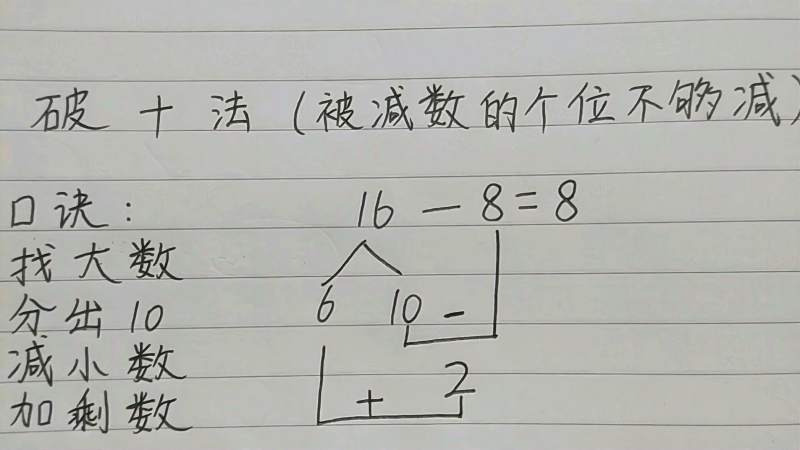 破十法(被减数的个位不够减)
口诀: 16-8=8
找大数
分出10 6 10 -
减小数
加剩数 + 2